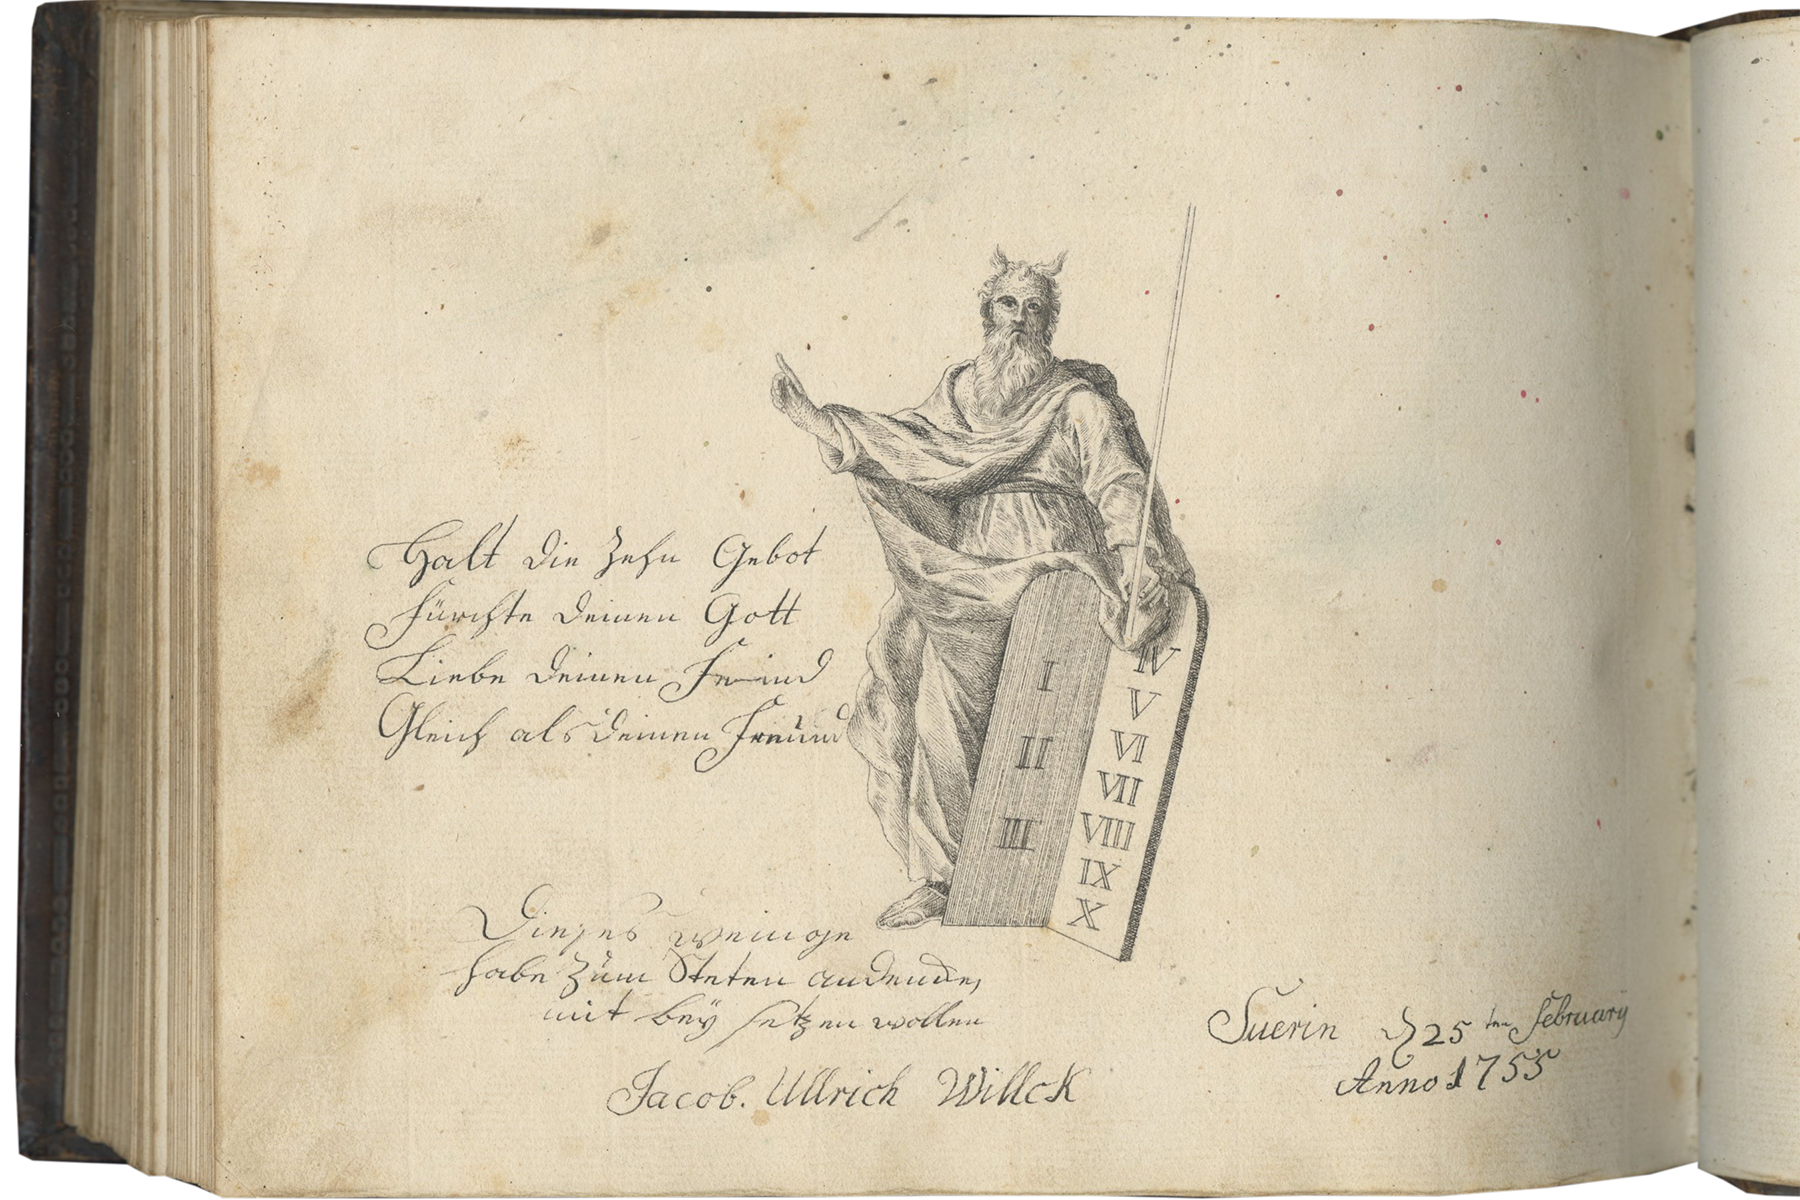 Halt die zehn Gebot
fürchte deinen Gott
Liebe deinen Feind
Gleich als deinen Freund
I
II
III
IV
V
VI
VII
VIII
IX
X
Dieses wenige
habe zum Steten andencke,
mit beÿ setzen wollen
Jacob. Ullrich Willck
Suerin d 25 ten Februarÿ
Anno 1755